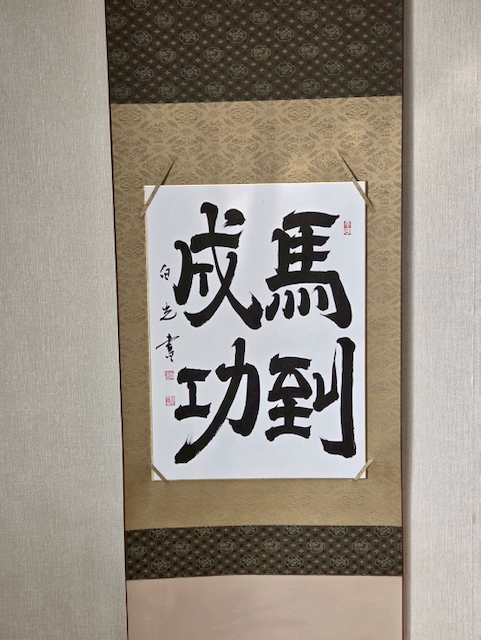 馬到
成功
白光書